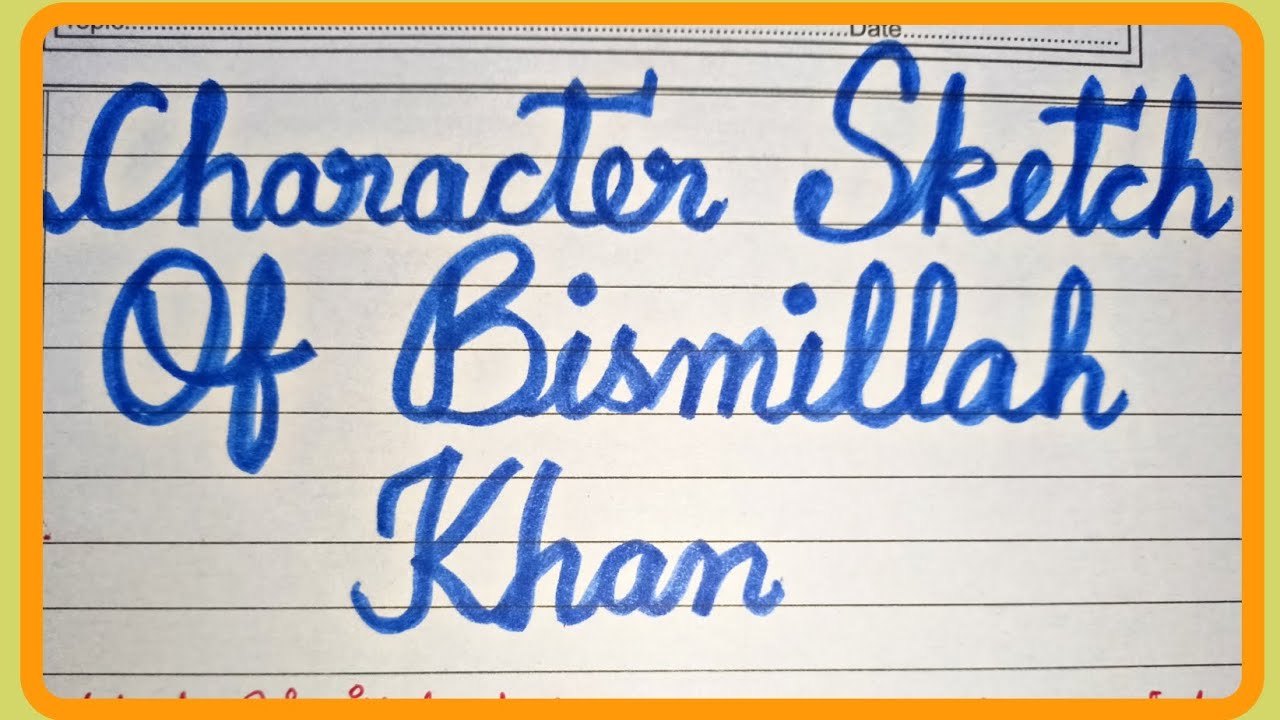 Topic................Date................
Character Sketch
Of Bismillah
Khan